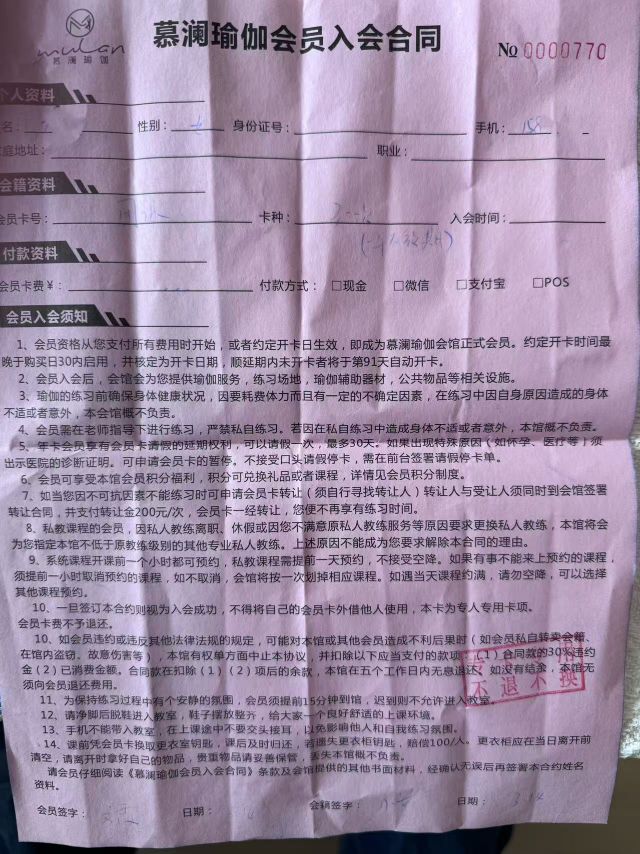 mulan
慕澜瑜伽
慕澜瑜伽会员入会合同
№ 0000770
个人资料
名： 性别： 女 身份证号： 手机：
庭地址： 职业：
会籍资料
会员卡号： 卡种： 入会时间：
付款资料
会员卡费¥： 付款方式： □现金 □微信 □支付宝 □POS
会员入会须知
1、会员资格从您支付所有费用时开始，或者约定开卡日生效，即成为慕澜瑜伽会馆正式会员。约定开卡时间最
晚于购买日30内启用，并核定为开卡日期，顺延期内未开卡者将于第91天自动开卡。
2、会员入会后，会馆会为您提供瑜伽服务，练习场地，瑜伽辅助器材，公共物品等相关设施。
3、瑜伽的练习前确保身体健康状况，因要耗费体力而且有一定的不确定因素，在练习中因自身原因造成的身体
不适或者意外，本会馆概不负责。
4、会员需在老师指导下进行练习，严禁私自练习。若因在私自练习中造成身体不适或者意外，本馆概不负责。
5、年卡会员享有会员卡请假的延期权利，可以请假一次，最多30天。如果出现特殊原因（如怀孕、医疗等）须
出示医院的诊断证明。可申请会员卡的暂停。不接受口头请假停卡，需在前台签署请假停卡单。
6、会员可享受本馆会员积分福利，积分可兑换礼品或者课程，详情见会员积分制度。
7、如当您因不可抗因素不能练习时可申请会员卡转让（须自行寻找转让人）转让人与受让人须同时到会馆签署
转让合同，并支付转让金200元/次，会员卡一经转让，您便不再享有练习时间。
8、私教课程的会员，因私人教练离职、休假或因您不满意原私人教练服务等原因要求更换私人教练，本馆将会
为您指定本馆不低于原教练级别的其他专业私人教练。上述原因不能成为您要求解除本合同的理由。
9、系统课程开课前一个小时都可预约，私教课程需提前一天预约，不接受空降。如果有事不能来上预约的课程，
须提前一小时取消预约的课程，如不取消，会馆将按一次划掉相应课程。如遇当天课程约满，请勿空降，可以选择
其他课程预约。
10、一旦签订本合约则视为入会成功，不得将自己的会员卡外借他人使用，本卡为专人专用卡项。
会员卡费不予退还。
10、如会员违约或违反其他法律法规的规定，可能对本馆或其他会员造成不利后果时（如会员私自转卖会籍、
在馆内盗窃、故意伤害等），本馆有权单方面中止本协议，并扣除以下应当支付的款项：（1）合同款的30%违约
金（2）已消费金额。合同款在扣除（1）（2）项后的余款，本馆在五个工作日内无息退还。如没有结余，本馆无
须向会员退还费用。
专 用
不退不换
11、为保持练习过程中有个安静的氛围，会员须提前15分钟到馆，迟到则不允许进入教室。
12、请净脚后脱鞋进入教室，鞋子摆放整齐，给大家一个良好舒适的上课环境。
13、手机不能带入教室，在上课途中不要交头接耳，以免影响他人和自我练习氛围。
14、课前凭会员卡换取更衣室钥匙，课后及时归还，若遗失更衣柜钥匙，赔偿100/人。更衣柜应在当日离开前
清空，请离开时拿好自己的物品，贵重物品请妥善保管，丢失本馆概不负责。
请会员仔细阅读《慕澜瑜伽会员入会合同》条款及会馆提供的其他书面材料，经确认无误后再签署本合约姓名
资料。
会员签字： 日期： 会籍签字： 日期：